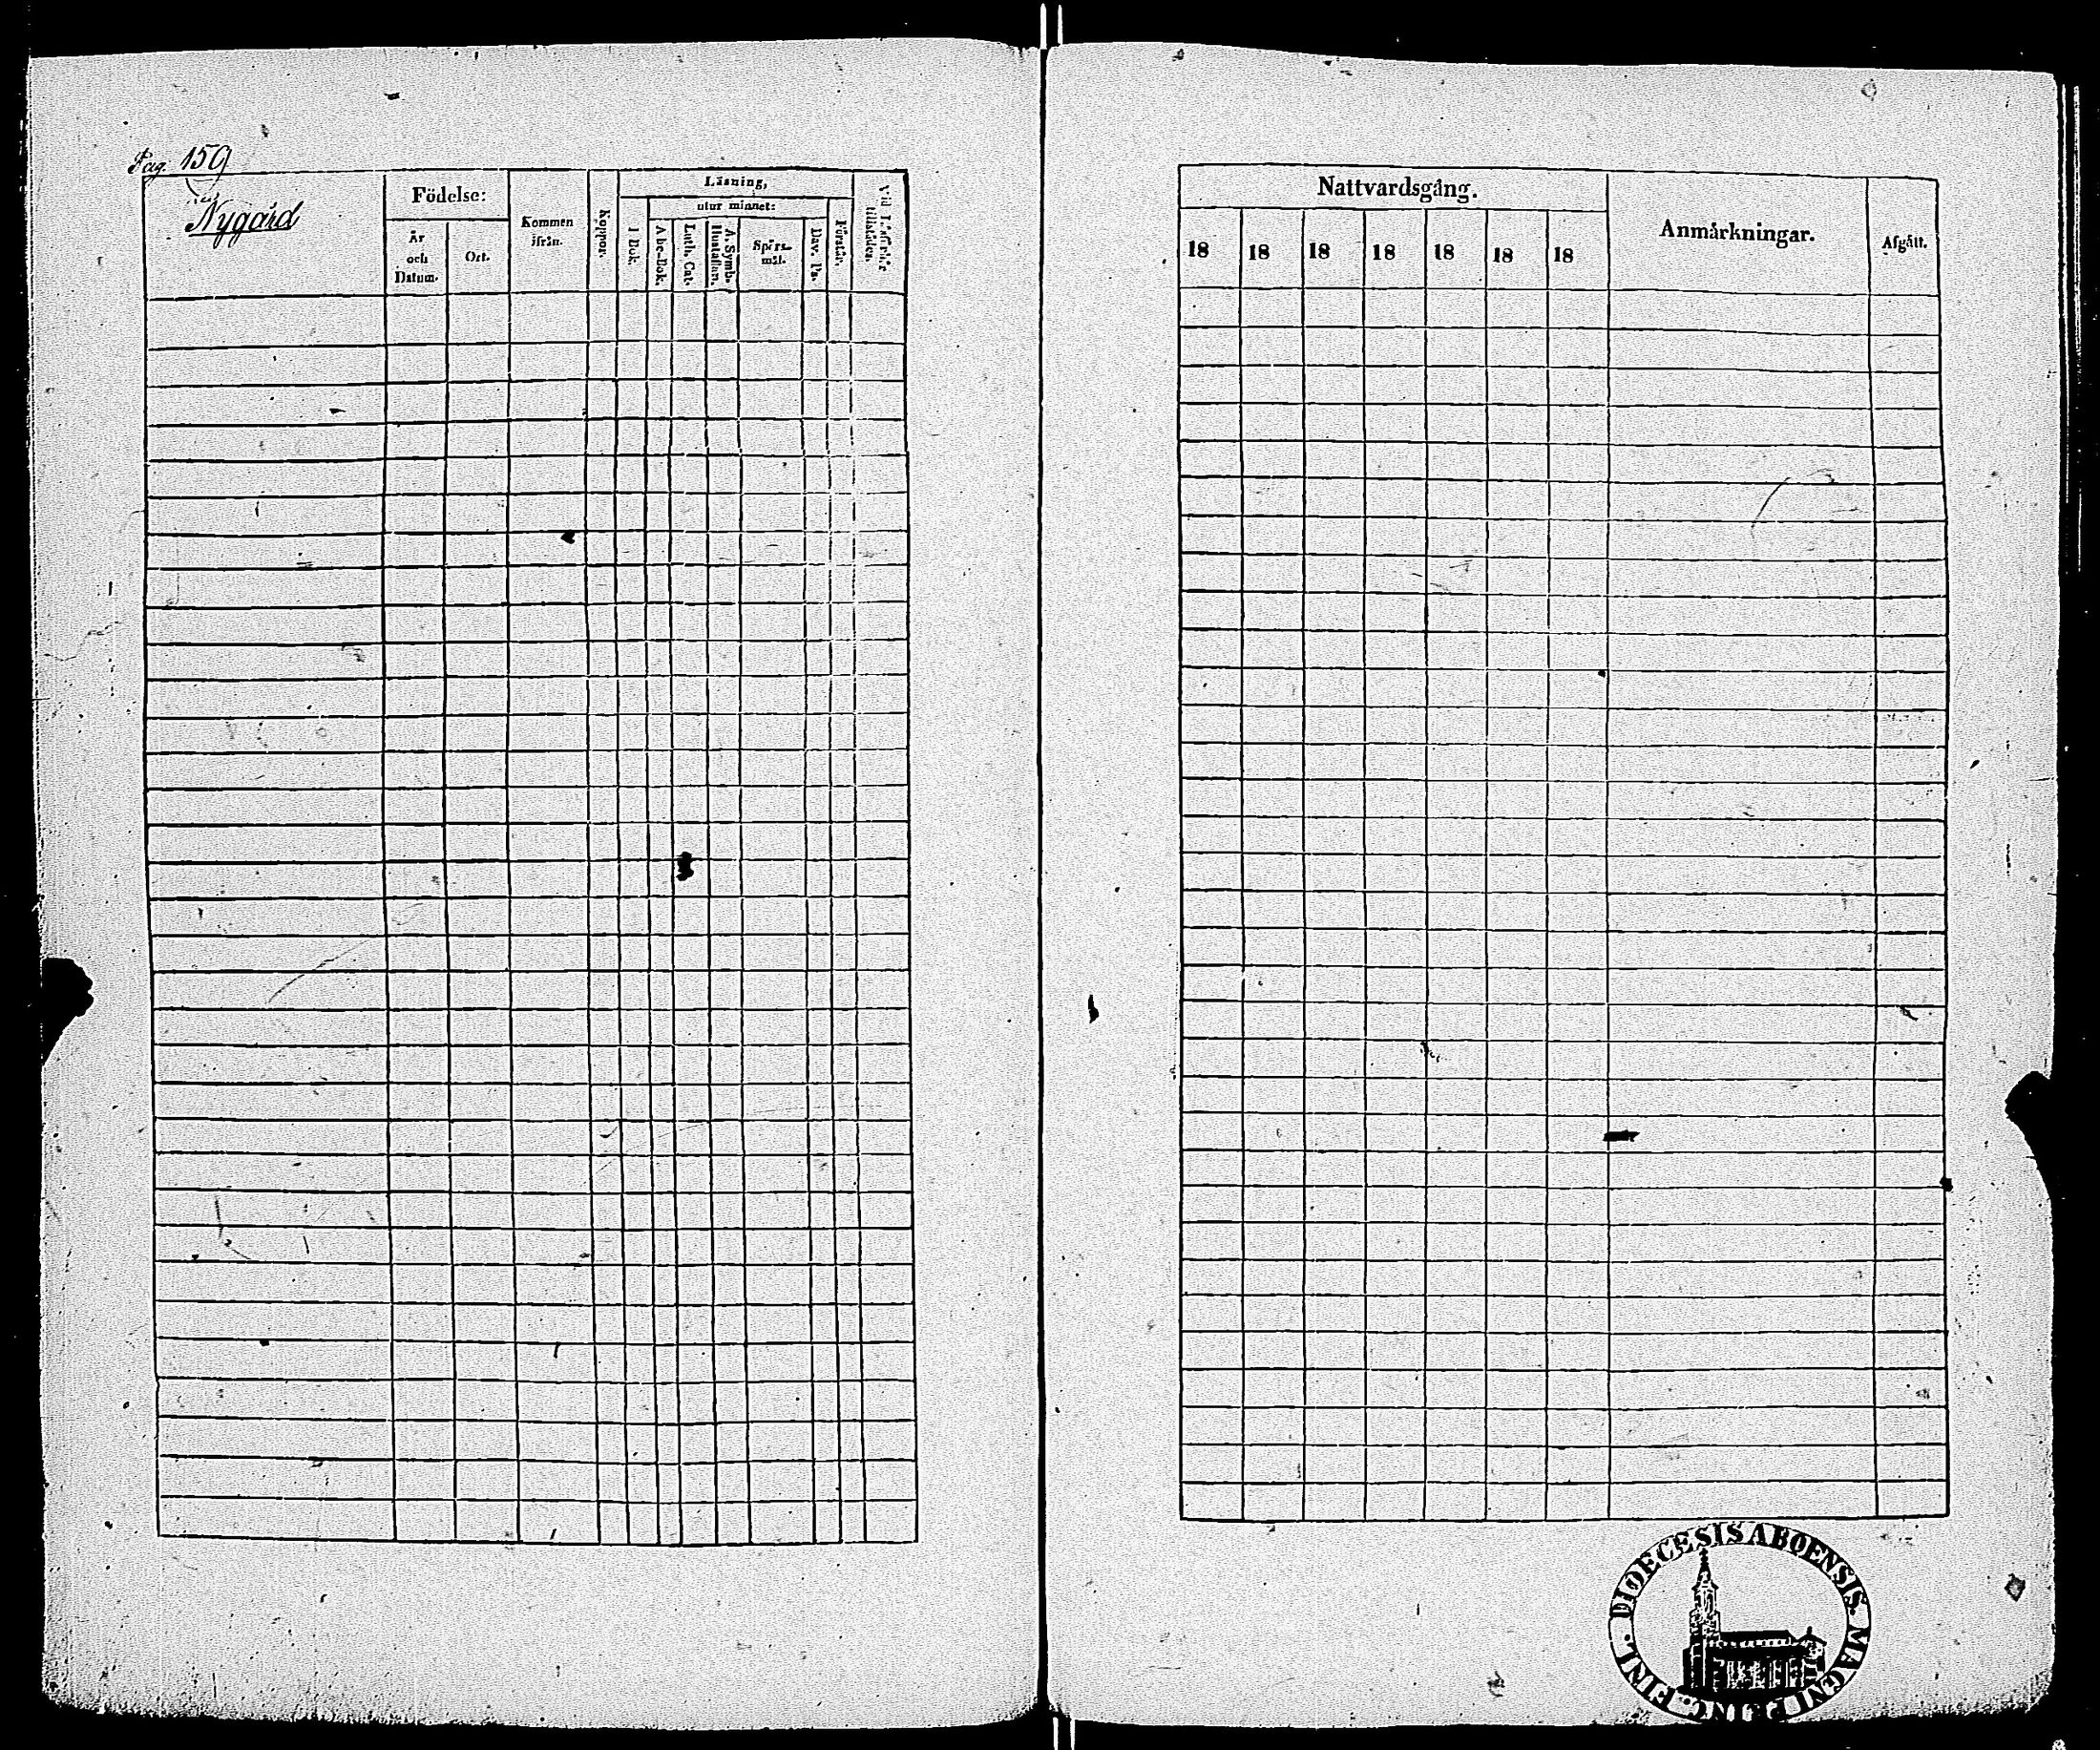 Pag. 159
Nygård
Födelse:
År
och
Datum.
Ort.
Kommen
ifrån.
Koppor.
Läsning,
utur minnet:
I Bok.
Abc-Bok.
Luth. Cat.
A. Symb.
Hustaflan.
Spörs-
mål.
Dav. Ps.
Förstår.
Vid Läsförhör
tillstädes.
Nattvardsgång.
18 18 18 18 18 18 18
Anmärkningar.
Afgått.
DIOECESIS ABOENSIS. MAGNI PRINC. FINL.